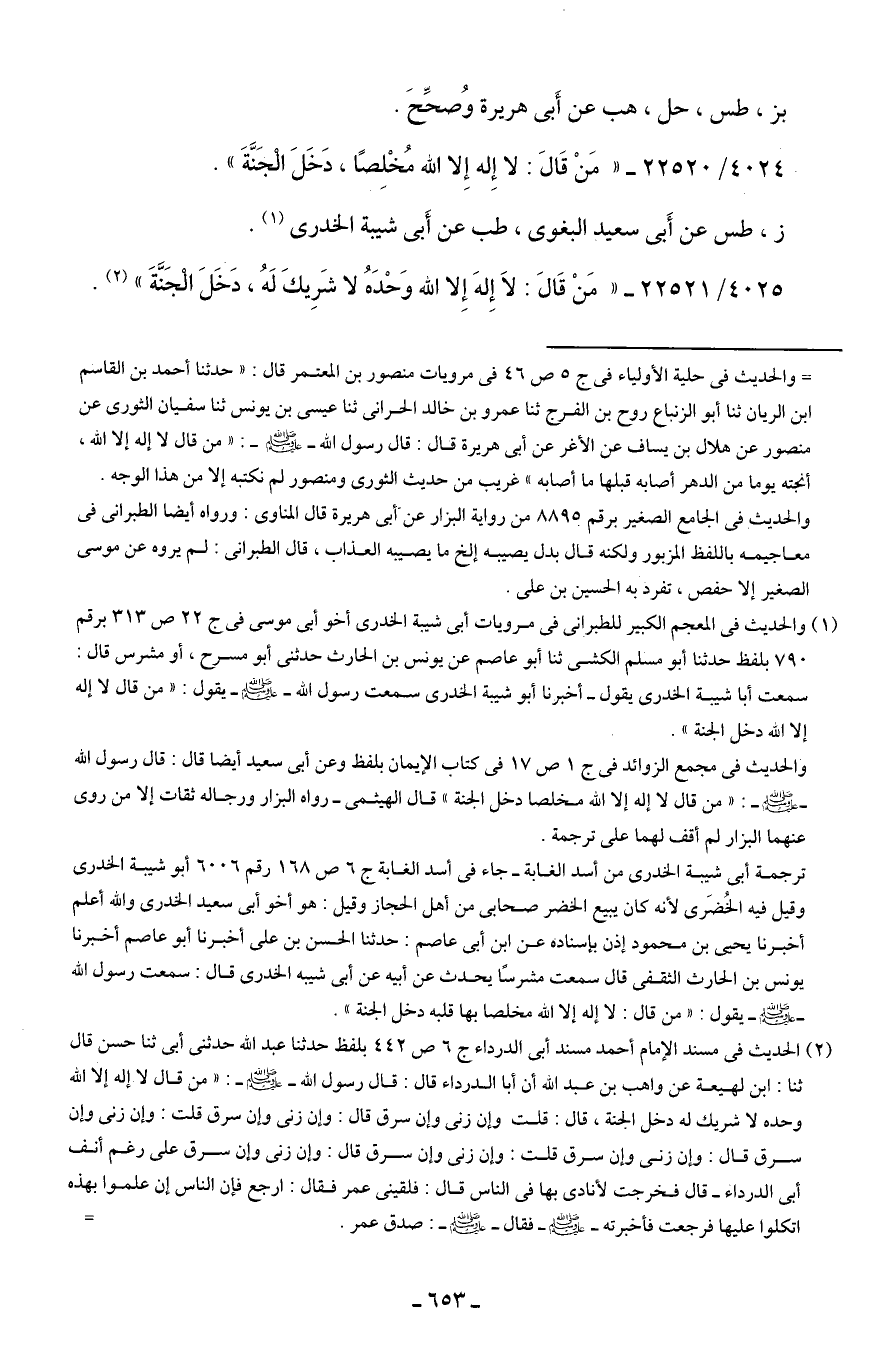 بز ، طس ، حل ، هب عن أَبى هريرة وُصحِّحَ .
٤٠٢٤/ ٢٢٥٢٠ ـ « مَنْ قَالَ : لا إِله إِلا الله مُخْلِصًا ، دَخَلَ الْجَنَّةَ » .
ز ، طس عن أَبى سعيد البغوى ، طب عن أَبى شيبة الخدرى (١) .
٤٠٢٥/ ٢٢٥٢١ ـ « مَنْ قَالَ : لاَ إِلهَ إِلا الله وَحْدَهُ لا شَرِيكَ لَهُ ، دَخَلَ الْجَنَّةَ » (٢) .
= والحديث فى حلية الأولياء فى ج ٥ ص ٤٦ فى مرويات منصور بن المعتمر قال : « حدثنا أحمد بن القاسم
ابن الريان ثنا أبو الزنباع روح بن الفرج ثنا عمرو بن خالد الحرانى ثنا عيسى بن يونس ثنا سفيان الثورى عن
منصور عن هلال بن يساف عن الأغر عن أبى هريرة قال : قال رسول الله ـ ﷺ ـ : « من قال لا إله إلا الله ،
أنجته يوما من الدهر أصابه قبلها ما أصابه » غريب من حديث الثورى ومنصور لم نكتبه إلا من هذا الوجه .
والحديث فى الجامع الصغير برقم ٨٨٩٥ من رواية البزار عن أبى هريرة قال المناوى : ورواه أيضا الطبرانى فى
معاجيمه باللفظ المزبور ولكنه قال بدل يصيبه إلخ ما يصيبه العذاب ، قال الطبرانى : لم يروه عن موسى
الصغير إلا حفص ، تفرد به الحسين بن على .
(١) والحديث فى المعجم الكبير للطبرانى فى مرويات أبى شيبة الخدرى أخو أبى موسى فى ج ٢٢ ص ٣١٣ برقم
٧٩٠ بلفظ حدثنا أبو مسلم الكشى ثنا أبو عاصم عن يونس بن الحارث حدثنى أبو مسرح ، أو مشرس قال :
سمعت أبا شيبة الخدرى يقول ـ أخبرنا أبو شيبة الخدرى سمعت رسول الله ـ ﷺ ـ يقول : « من قال لا إله
إلا الله دخل الجنة » .
والحديث فى مجمع الزوائد فى ج ١ ص ١٧ فى كتاب الإيمان بلفظ وعن أبى سعيد أيضا قال : قال رسول الله
ـ ﷺ ـ : « من قال لا إله إلا الله مخلصا دخل الجنة » قال الهيثمى ـ رواه البزار ورجاله ثقات إلا من روى
عنهما البزار لم أقف لهما على ترجمة .
ترجمة أبى شيبة الخدرى من أسد الغابة ـ جاء فى أسد الغابة ج ٦ ص ١٦٨ رقم ٦٠٠٦ أبو شيبة الخدرى
وقيل فيه الخُضَرى لأنه كان يبيع الخضر صحابى من أهل الحجاز وقيل : هو أخو أبى سعيد الخدرى والله أعلم
أخبرنا يحيى بن محمود إذن بإسناده عن ابن أبى عاصم : حدثنا الحسن بن على أخبرنا أبو عاصم أخبرنا
يونس بن الحارث الثقفى قال سمعت مشرسًا يحدث عن أبيه عن أبى شيبه الخدرى قال : سمعت رسول الله
ـ ﷺ ـ يقول : « من قال : لا إله إلا الله مخلصا بها قلبه دخل الجنة » .
(٢) الحديث فى مسند الإمام أحمد مسند أبى الدرداء ج ٦ ص ٤٤٢ بلفظ حدثنا عبد الله حدثنى أبى ثنا حسن قال
ثنا : ابن لهيعة عن واهب بن عبد الله أن أبا الدرداء قال : قال رسول الله ـ ﷺ ـ : « من قال لا إله إلا الله
وحده لا شريك له دخل الجنة ، قال : قلت وإن زنى وإن سرق قال : وإن زنى وإن سرق قلت : وإن زنى وإن
سرق قال : وإن زنى وإن سرق قلت : وإن زنى وإن سرق قال : وإن زنى وإن سرق على رغم أنف
أبى الدرداء ـ قال فخرجت لأنادى بها فى الناس قال : فلقينى عمر فقال : ارجع فإن الناس إن علموا بهذه
اتكلوا عليها فرجعت فأخبرته ـ ﷺ ـ فقال ـ ﷺ ـ : صدق عمر . =
ـ ٦٥٣ ـ